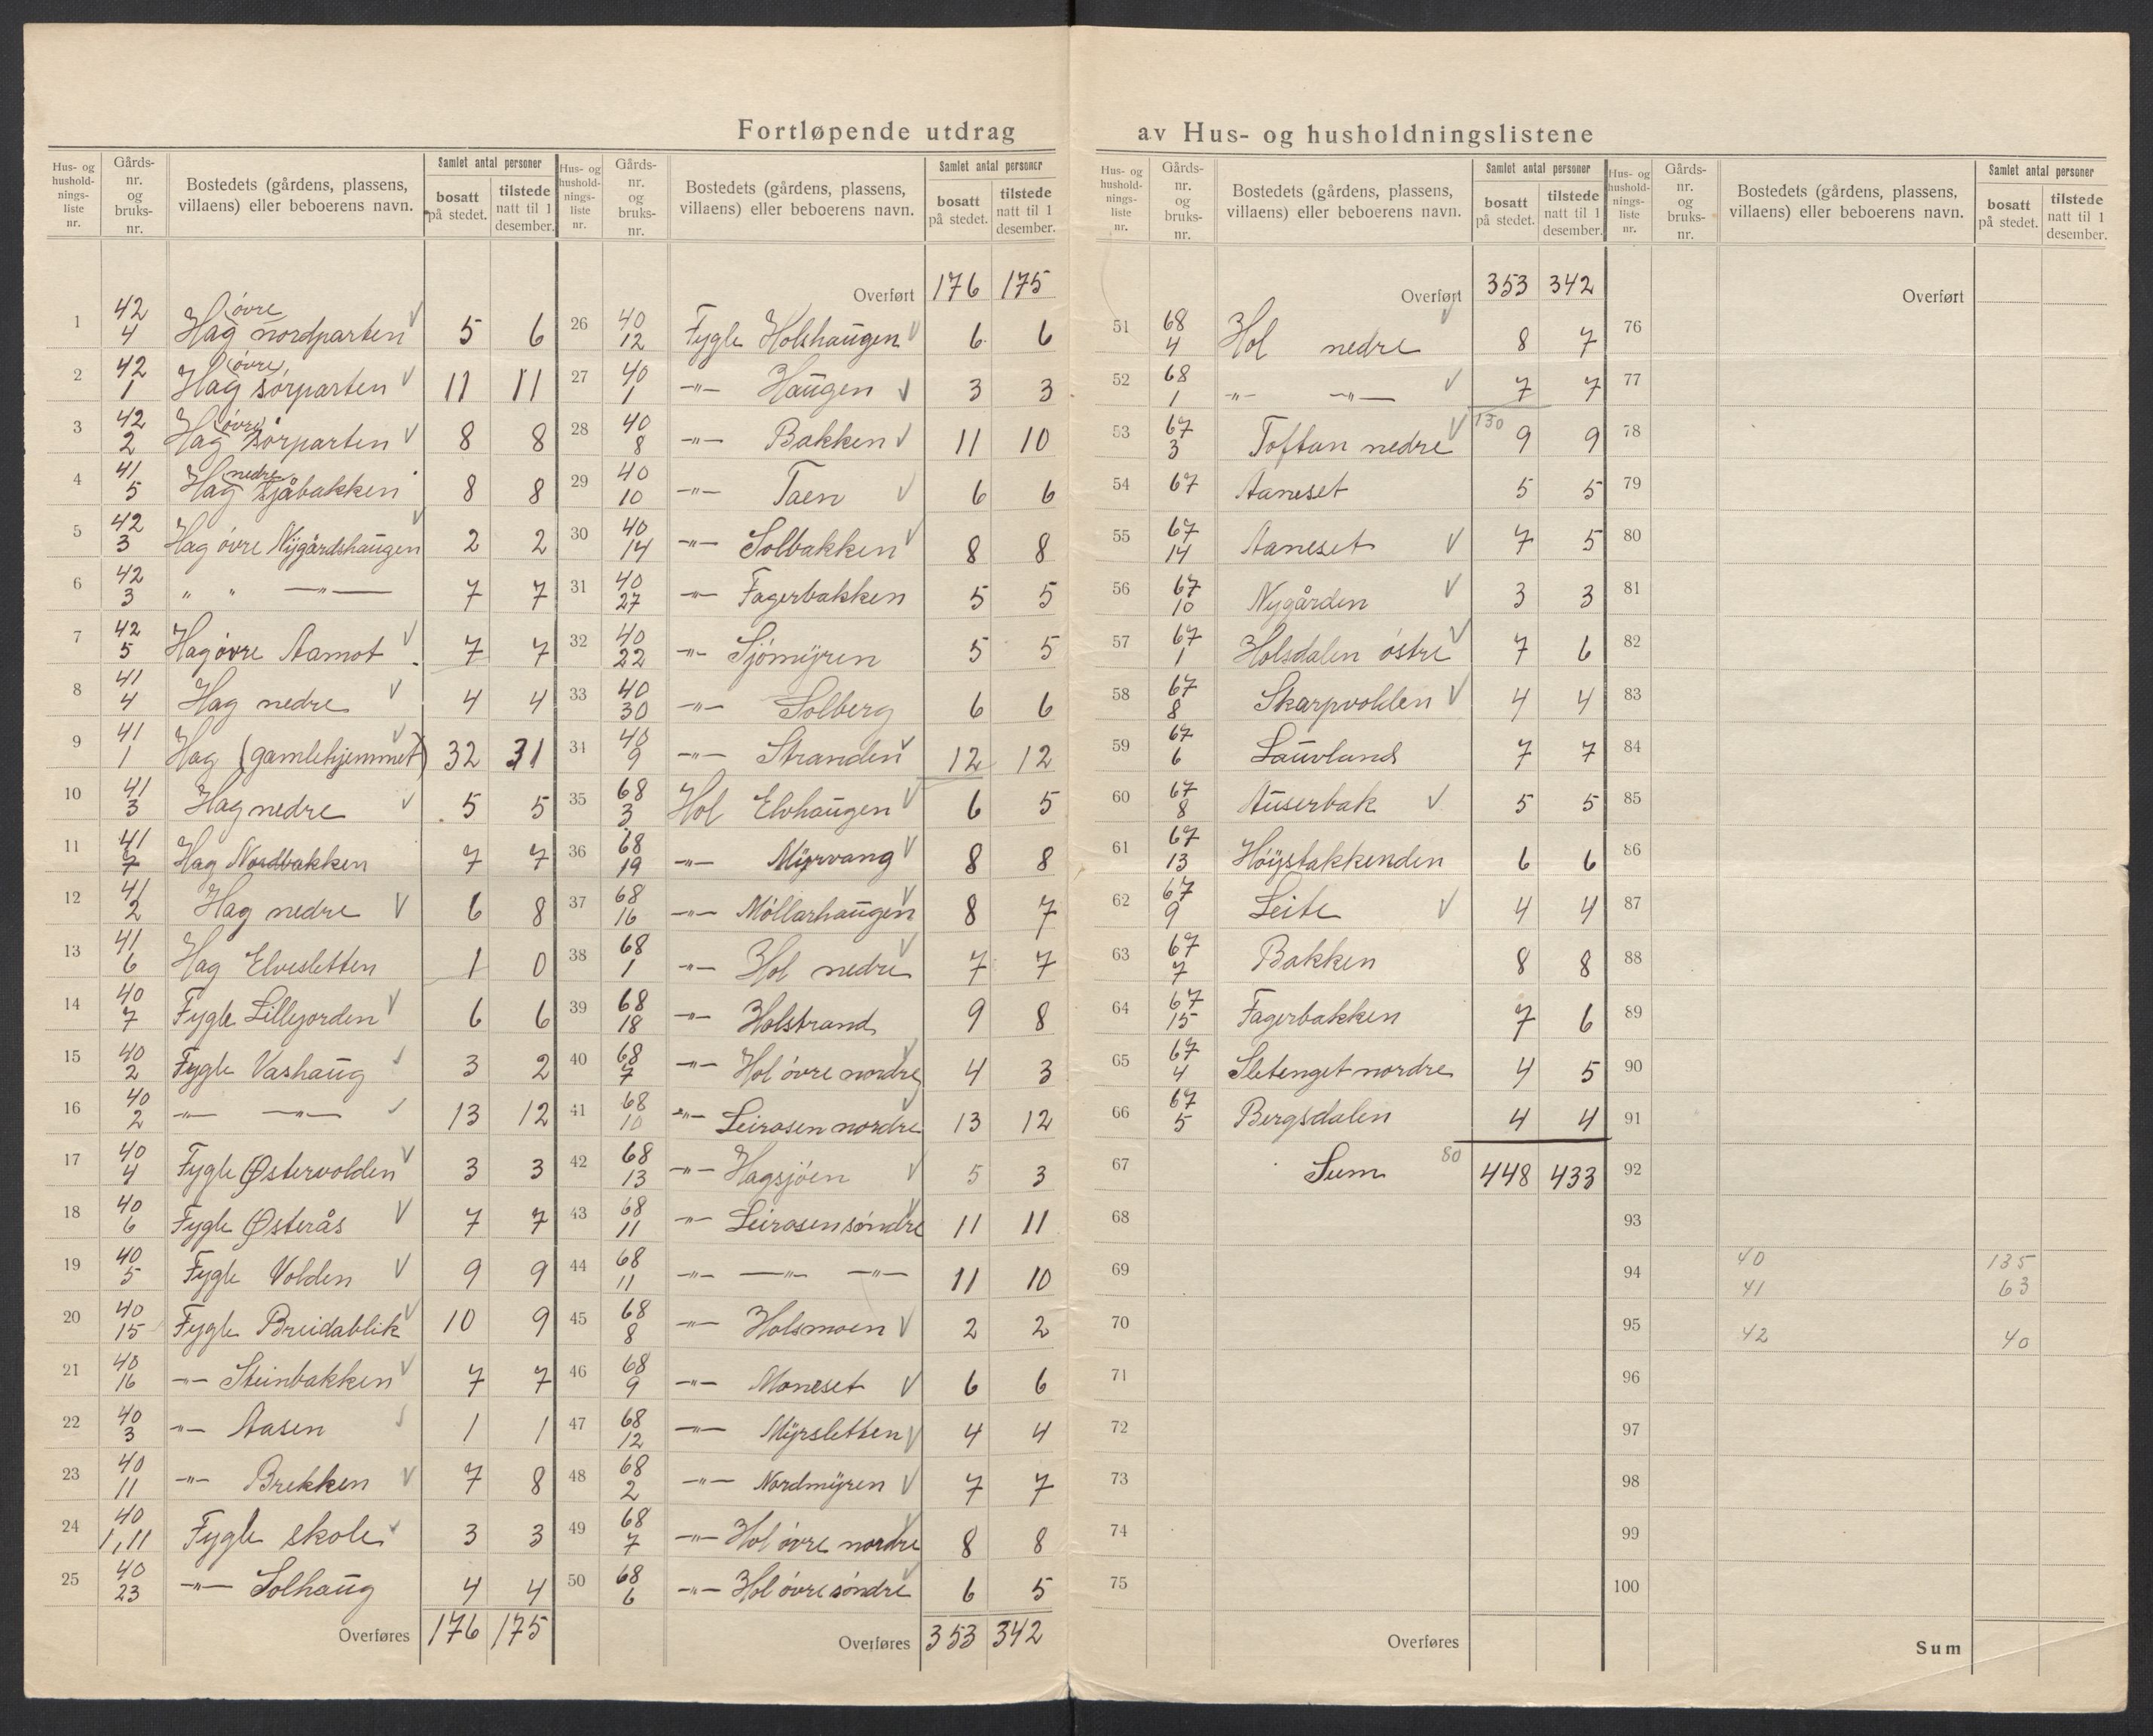 Fortløpende utdrag av Hus- og husholdningslistene
Hus- og husholdnings-liste nr. | Gårds-nr. og bruks-nr. | Bostedets (gårdens, plassens, villaens) eller beboerens navn. | Samlet antal personer | bosatt på stedet. | tilstede natt til 1 desember.
1 | 42 4 | Hag øvre nordparten | 5 | 6
2 | 42 1 | Hag øvre sørparten | 11 | 11
3 | 42 2 | Hag øvre sørparten | 8 | 8
4 | 41 5 | Hag nedre Sjåbakken | 8 | 8
5 | 42 3 | Hag øvre Nygårdshaugen | 2 | 2
6 | 42 3 | " " —"— | 7 | 7
7 | 42 5 | Hag øvre Aamot | 7 | 7
8 | 41 4 | Hag nedre | 4 | 4
9 | 41 1 | Hag (gamlehjemmet) | 32 | 31
10 | 41 3 | Hag nedre | 5 | 5
11 | 41 7 | Hag Nordbakken | 7 | 7
12 | 41 2 | Hag nedre | 6 | 8
13 | 41 6 | Hag Elvesletten | 1 | 0
14 | 40 7 | Fygle Lillejorden | 6 | 6
15 | 40 2 | Fygle Vashaug | 3 | 2
16 | 40 2 | —"— —"— | 13 | 12
17 | 40 4 | Fygle Østervolden | 3 | 3
18 | 40 6 | Fygle Østerås | 7 | 7
19 | 40 5 | Fygle Volden | 9 | 9
20 | 40 15 | Fygle Breidablik | 10 | 9
21 | 40 16 | —"— Steinbakken | 7 | 7
22 | 40 3 | —"— Aasen | 1 | 1
23 | 40 11 | —"— Brekken | 7 | 8
24 | 40 1,11 | Fygle skole | 3 | 3
25 | 40 23 | —"— Solhaug | 4 | 4
Overføres | 176 | 175
Hus- og husholdnings-liste nr. | Gårds-nr. og bruks-nr. | Bostedets (gårdens, plassens, villaens) eller beboerens navn. | Samlet antal personer | bosatt på stedet. | tilstede natt til 1 desember.
Overført | 176 | 175
26 | 40 12 | Fygle Holshaugen | 6 | 6
27 | 40 1 | —"— Haugen | 3 | 3
28 | 40 8 | —"— Bakken | 11 | 10
29 | 40 10 | —"— Taen | 6 | 6
30 | 40 14 | —"— Solbakken | 8 | 8
31 | 40 27 | —"— Fagerbakken | 5 | 5
32 | 40 22 | —"— Sjømyren | 5 | 5
33 | 40 30 | —"— Solberg | 6 | 6
34 | 40 9 | —"— Stranden | 12 | 12
35 | 68 3 | Hol Elvhaugen | 6 | 5
36 | 68 19 | —"— Myrvang | 8 | 8
37 | 68 16 | —"— Møllarhaugen | 8 | 7
38 | 68 1 | —"— Hol nedre | 7 | 7
39 | 68 18 | —"— Holstrand | 9 | 8
40 | 68 7 | —"— Hol øvre nordre | 4 | 3
41 | 68 10 | —"— Leirosen nordre | 13 | 12
42 | 68 13 | —"— Hagsjøen | 5 | 3
43 | 68 11 | —"— Leirosen søndre | 11 | 11
44 | 68 11 | —"— —"— —"— | 11 | 10
45 | 68 8 | —"— Holsmoen | 2 | 2
46 | 68 9 | —"— Moneset | 6 | 6
47 | 68 12 | —"— Myrsletten | 4 | 4
48 | 68 2 | —"— Nordmyren | 7 | 7
49 | 68 7 | —"— Hol øvre nordre | 8 | 8
50 | 68 6 | —"— Hol øvre søndre | 6 | 5
Overføres | 353 | 342
Hus- og husholdnings-liste nr. | Gårds-nr. og bruks-nr. | Bostedets (gårdens, plassens, villaens) eller beboerens navn. | Samlet antal personer | bosatt på stedet. | tilstede natt til 1 desember.
Overført | 353 | 342
51 | 68 4 | Hol nedre | 8 | 7
52 | 68 1 | —"— —"— | 7 | 7
130
53 | 67 3 | Toftan nedre | 9 | 9
54 | 67 | Aaneset | 5 | 5
55 | 67 14 | Aaneset | 7 | 5
56 | 67 10 | Nygården | 3 | 3
57 | 67 1 | Holsdalen østre | 7 | 6
58 | 67 8 | Skarpvolden | 4 | 4
59 | 67 6 | Lauvland | 7 | 7
60 | 67 8 | Auserbak | 5 | 5
61 | 67 13 | Høystakkenden | 6 | 6
62 | 67 9 | Leite | 4 | 4
63 | 67 7 | Bakken | 8 | 8
64 | 67 15 | Fagerbakken | 7 | 6
65 | 67 4 | Sletenget nordre | 4 | 5
66 | 67 5 | Bergsdalen | 4 | 4
67 | Sum | 80 | 448 | 433
68
69
70
71
72
73
74
75
Overføres
Hus- og husholdnings-liste nr. | Gårds-nr. og bruks-nr. | Bostedets (gårdens, plassens, villaens) eller beboerens navn. | Samlet antal personer | bosatt på stedet. | tilstede natt til 1 desember.
Overført
76
77
78
79
80
81
82
83
84
85
86
87
88
89
90
91
92
93
94 | 40 | 135
41 | 63
95 | 42 | 40
96
97
98
99
100
Sum